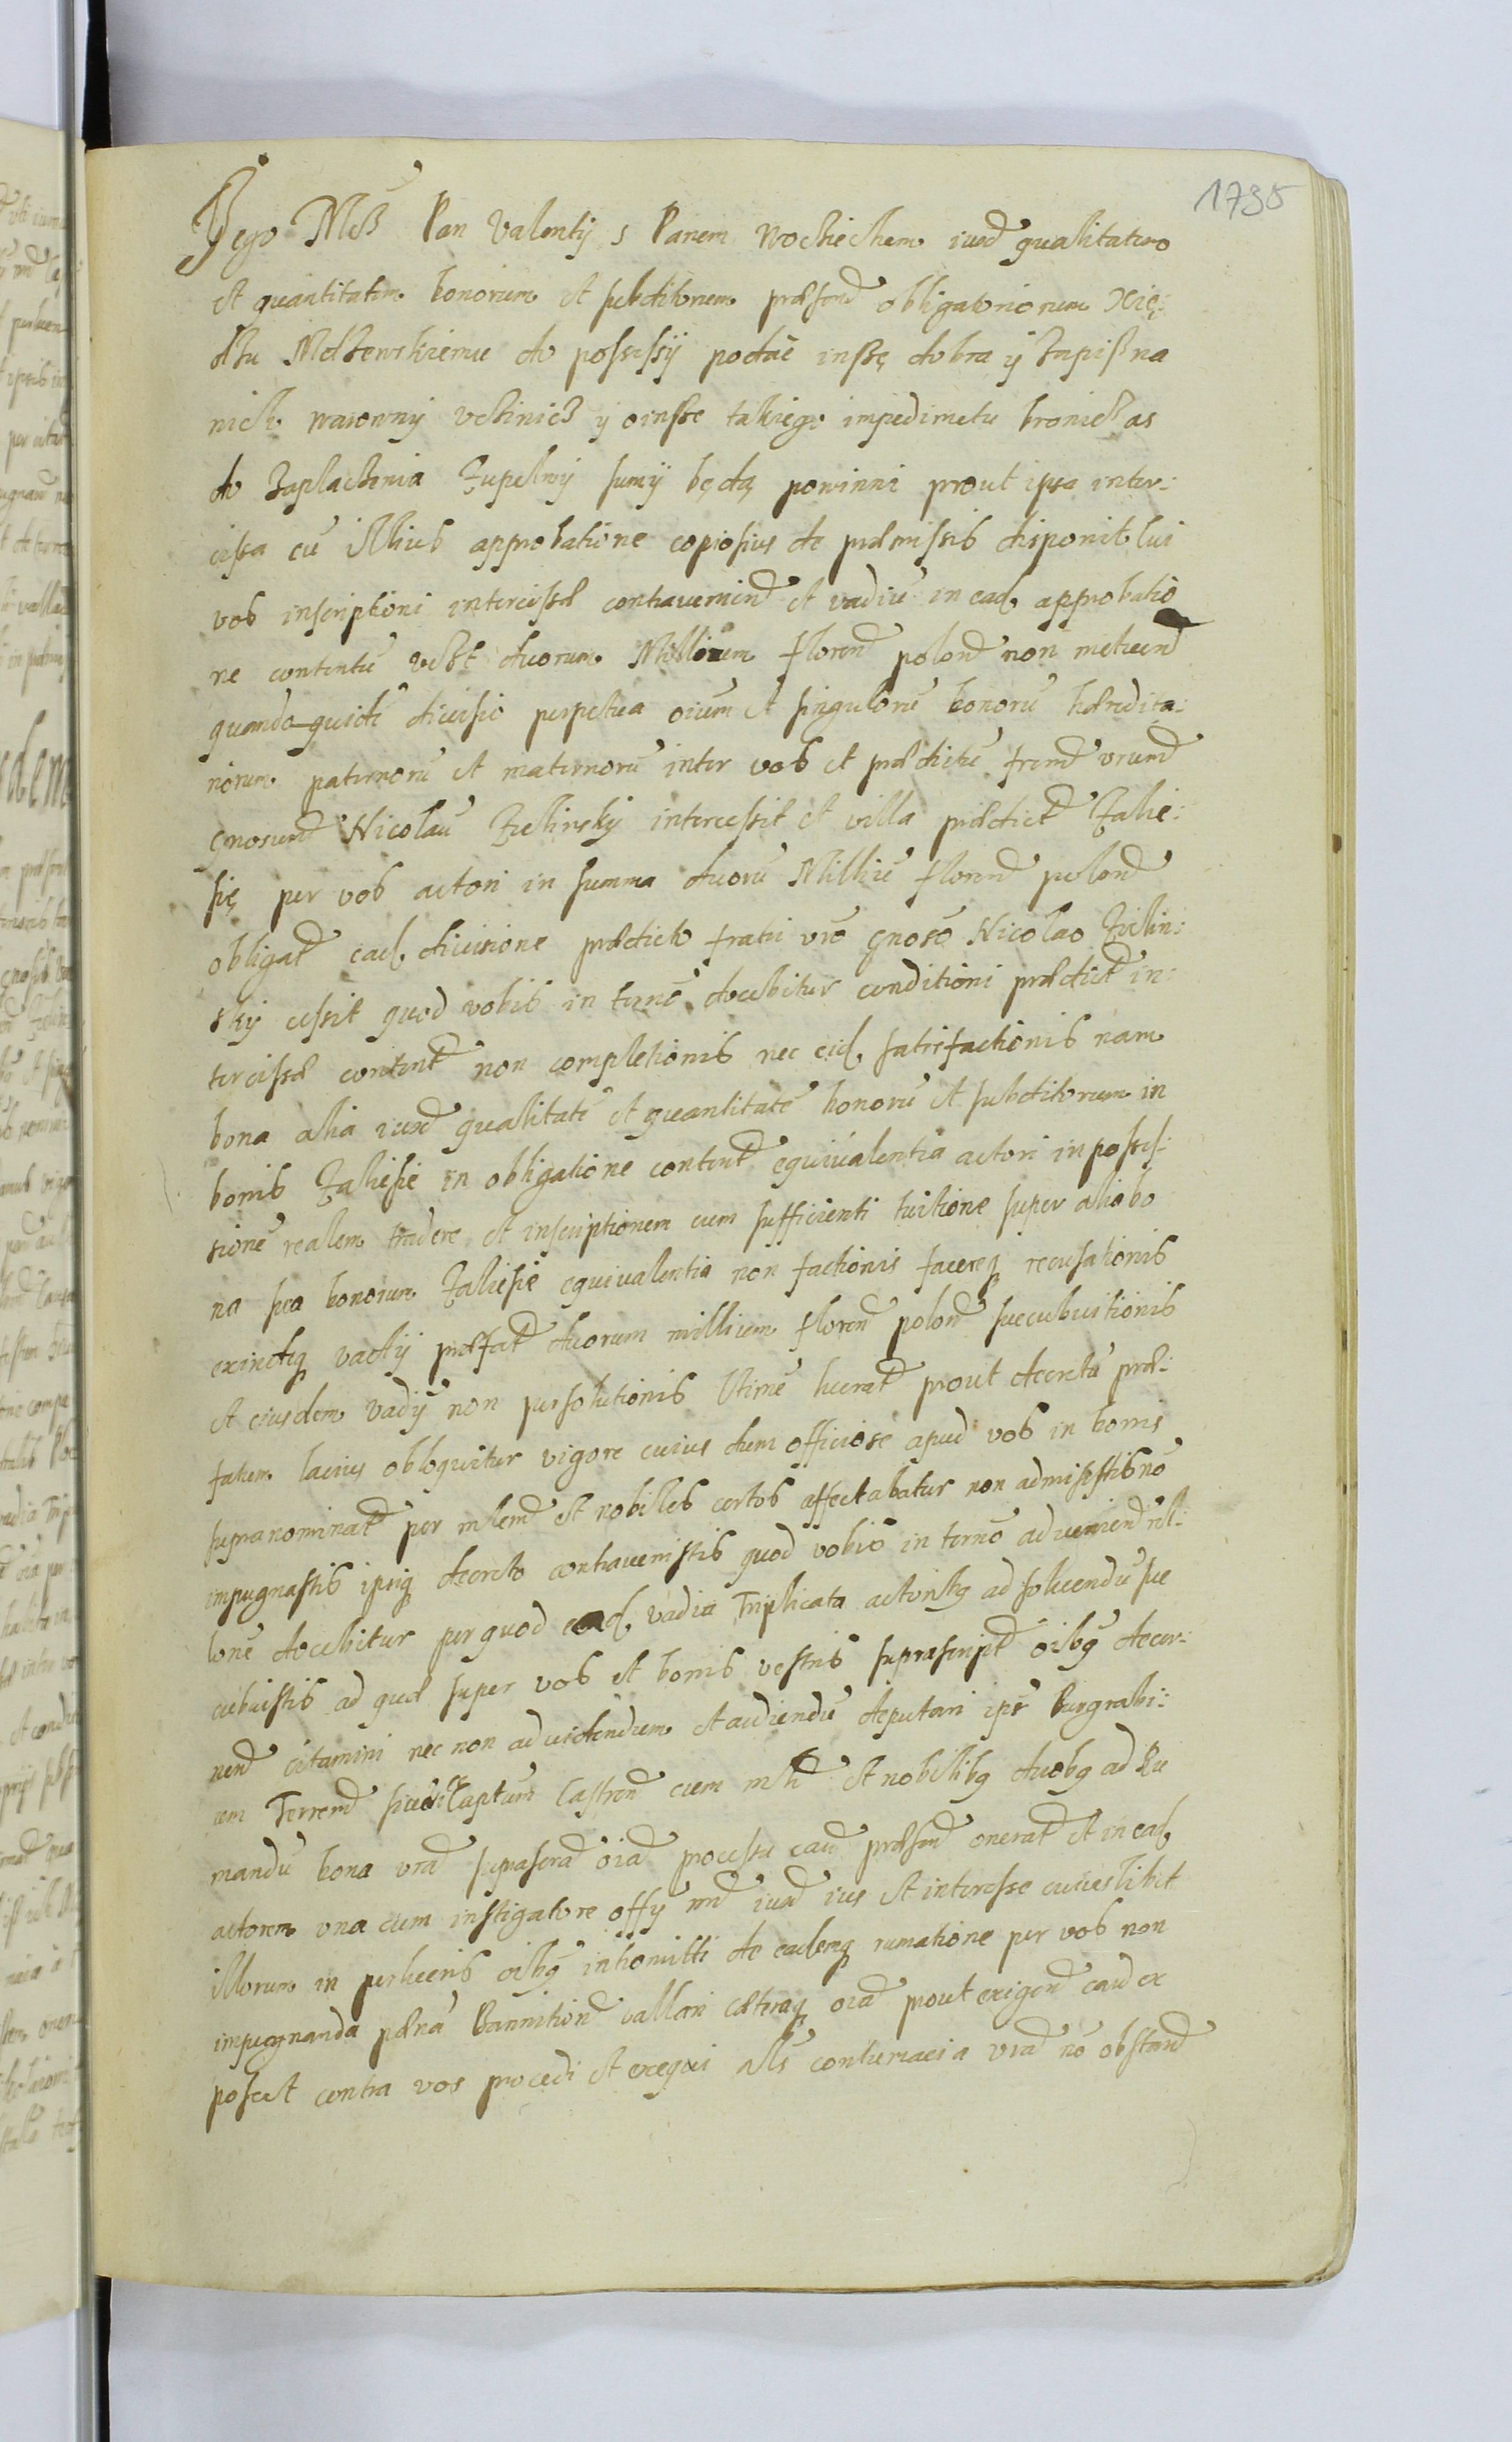 1735
Jego Mcż Pan Valenty s Panem Wochiechem iuxd qualitatem
et quantitatem bonorum et subditorum præsend obligatoriorum Xię:
dżu Mdzewskiemu do possessÿ podać insżę dobra ÿ Zapiß na
nich warowny vchinicż ÿ oinsże takiego impedimetu bronicż as
do Zaplachenia Zupelnÿ sumÿ będą powinni prout ipsa inter:
cissa cū illius approbatione copiosius de præmissis disponit cui
vos inscriptioni intercissæ contraveniend et vadiū in ead approbatio
ne contentū duorum Millium florend polond non metuend
quando quidē divisio perpetua oium et singulorū bonorū hæredita:
riorum paternorū et maternorū inter vos et prædictū fremd vrumd
Gnosumd Nicolaū Zielinskÿ intercessit et villa prædictad Zalie:
się per vos actori in summa duorū Milliū florend polond
obligatd ead divisione prædicto fratri vrō Gnosō Nicolao Zielin:
skÿ cessit quod vobis in ternō docebitur conditioni prædictd in:
tercissæ contentd non completionis nec eid satisfactionis nam
bona alia iuxd qualitatē et quantitatē bonorū et subditorum in
bonis Zaliesie in obligatione contentd equivalentia actori in posses:
sionē realem tradere et inscriptionem cum sufficienti tuitione super alio bo
na sua bonorum Zaliesie equivalentia non factionis facereq recusationis
exindeq vadÿ præfatd duorum millium florend polond succubuitionis
et eiusdem vadÿ non persolutionis Utimē lucratd prout decretū præ:
fatum lacius obloquitur vigore cuius dum officiose apud vos in bonis
supranominatd per mlemd et nobiles certos affectabatur non admisistis nō
impugnastis ipsiq decreto contravenistis quod vobis in ternō adveniend rel:
lonē docebitur per quod ead vadia Triplicata actoribq ad solvendū suc
cubuistis ad quæ super vos et bonis vestris suprascriptd oibq decer:
nend citamini nec non ad videndum et audiendū deputari ipē Burgrabi:
um Terremd sive Captum Castrend cum mltid et nobilibq duobq ad Ru
mandū bona vrad suprascrad oiad processu caud præsend oneratd et in ead
actorem una cum instigatore offÿ nrid iuxd ius et interesse cuiuslibet
illorum in perlucris oibq intromitti de eademq rumatione per vos non
impugnanda pænā Bannitiond vallari cæteraq oiad prout exigend caud ex
poscet contra vos procedi et exequi als contumacia vrad nō obstand